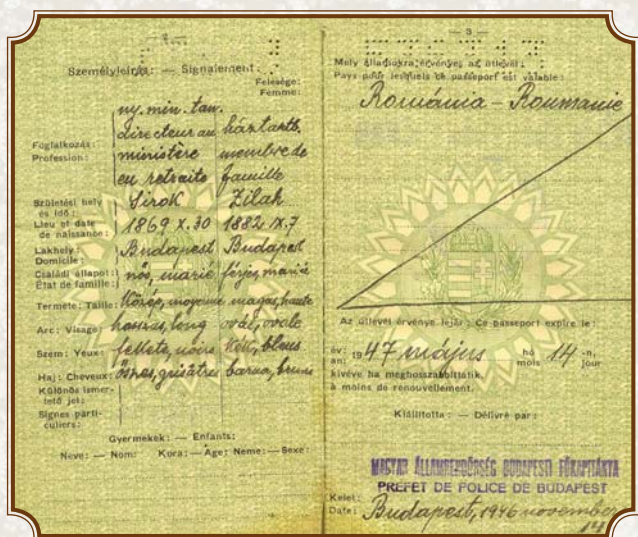 — 2 —
Személyleírás: — Signalement:
Felesége:
Femme:
ny. min. tan.
directeur au háztartb.
Foglalkozás:
Profession:
ministère membre de
en retraite famille
Születési hely
és idő:
Sirok Zilah
Lieu et date
de naissance:
1869 X.30 1882 IX.7
Lakhely:
Domicile:
Budapest Budapest
Családi állapot:
État de famille:
nős, marié férjes, mariée
Termete: Taille: Közép, moyenne magas, haute
Arc: Visage: hosszas, long ovál, ovale
Szem: Yeux: fekete, noirs kék, bleus
Haj: Cheveux: őszes, grisâtres barna, bruns
Különös ismer-
tető jel:
Signes parti-
culiers:
Gyermekek: — Enfants:
Neve: — Nom: Kora: — Age: Neme: — Sexe:
— 3 —
Mely államokra érvényes az útlevél:
Pays pour lesquels ce passeport est valable:
Románia - Roumanie
Az útlevél érvénye lejár: Ce passeport expire le:
év: an: 1947 május hó mois 14 -n, jour
kivéve ha meghosszabbíttatik.
à moins de renouvellement.
Kiállította: — Délivré par:
MAGYAR ÁLLAMRENDŐRSÉG BUDAPESTI FŐKAPITÁNYA
PREFET DE POLICE DE BUDAPEST
Kelet:
Date: Budapest, 1946 november
14